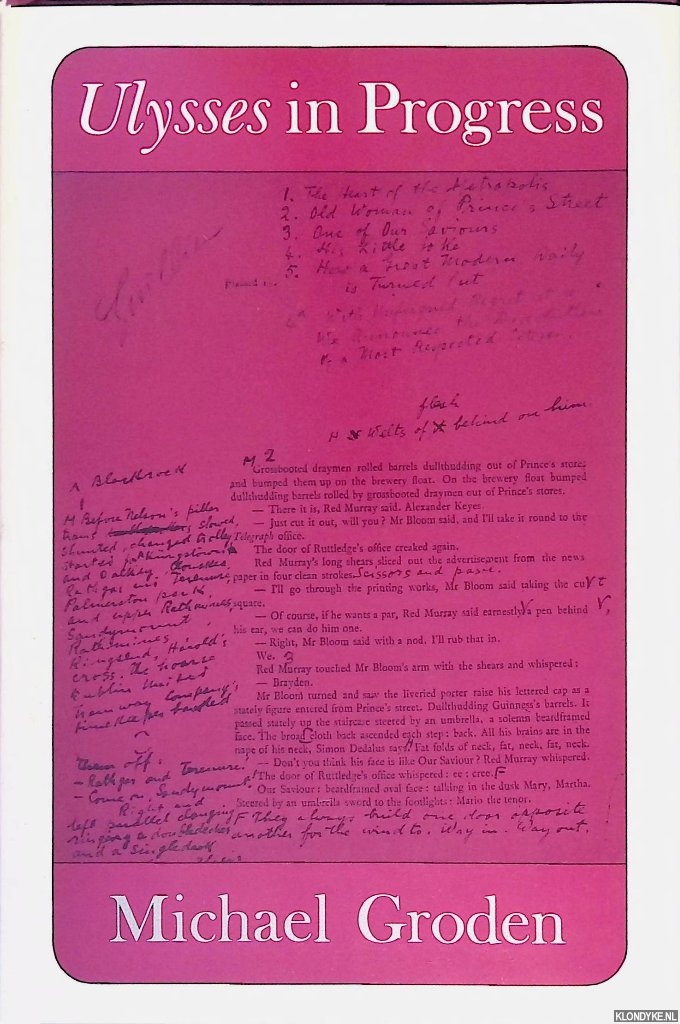 Ulysses in Progress
1. The Heart of the Metropolis
2. Old Woman of Prince's Street
3. One of Our Saviours
4. His Little Joke
5. How a Great Modern Daily
is Turned Out
6. With Unfeigned Regret it is
We Announce the Dissolution
of a Most Respected
flesh
Welts of behind on him.
Blackrock
M Before Nelson's pillar
trams slowed,
shunted, changed trolley,
started for Kingstown
and Dalkey, Clonskea,
Rathgar and Terenure,
Palmerston park
and upper Rathmines,
Sandymount
Rathmines
Ringsend, Harold's
Cross. The hoarse
Dublin United
Tramway Company's
timekeeper bawled
them off:
— Rathgar and Terenure!
— Come on, Sandymount
Right and
left parallel clanging
ringing a doubledecker
and a singledeck
M 2
Grossbooted draymen rolled barrels dullthudding out of Prince's stores
and bumped them up on the brewery float. On the brewery float bumped
dullthudding barrels rolled by grossbooted draymen out of Prince's stores.
— There it is, Red Murray said. Alexander Keyes.
— Just cut it out, will you? Mr Bloom said, and I'll take it round to the
Telegraph office.
The door of Ruttledge's office creaked again.
Red Murray's long shears sliced out the advertisement from the news
paper in four clean strokes. Scissors and paste.
— I'll go through the printing works, Mr Bloom said taking the cut
square.
— Of course, if he wants a par, Red Murray said earnestly a pen behind
his ear, we can do him one.
— Right, Mr Bloom said with a nod. I'll rub that in.
We.
Red Murray touched Mr Bloom's arm with the shears and whispered:
— Brayden.
Mr Bloom turned and saw the liveried porter raise his lettered cap as a
stately figure entered from Prince's street. Dullthudding Guinness's barrels. It
passed stately up the staircase steered by an umbrella, a solemn beardframed
face. The broadcloth back ascended each step: back. All his brains are in the
nape of his neck, Simon Dedalus says. Fat folds of neck, fat, neck, fat, neck.
— Don't you think his face is like Our Saviour? Red Murray whispered.
The door of Ruttledge's office whispered: ee: cree. F
Our Saviour: beardframed oval face: talking in the dusk Mary, Martha.
Steered by an umbrella sword to the footlights: Mario the tenor.
F They always build one door opposite
another for the wind to. Way in. Way out.
Michael Groden
KLONDYKE.NL